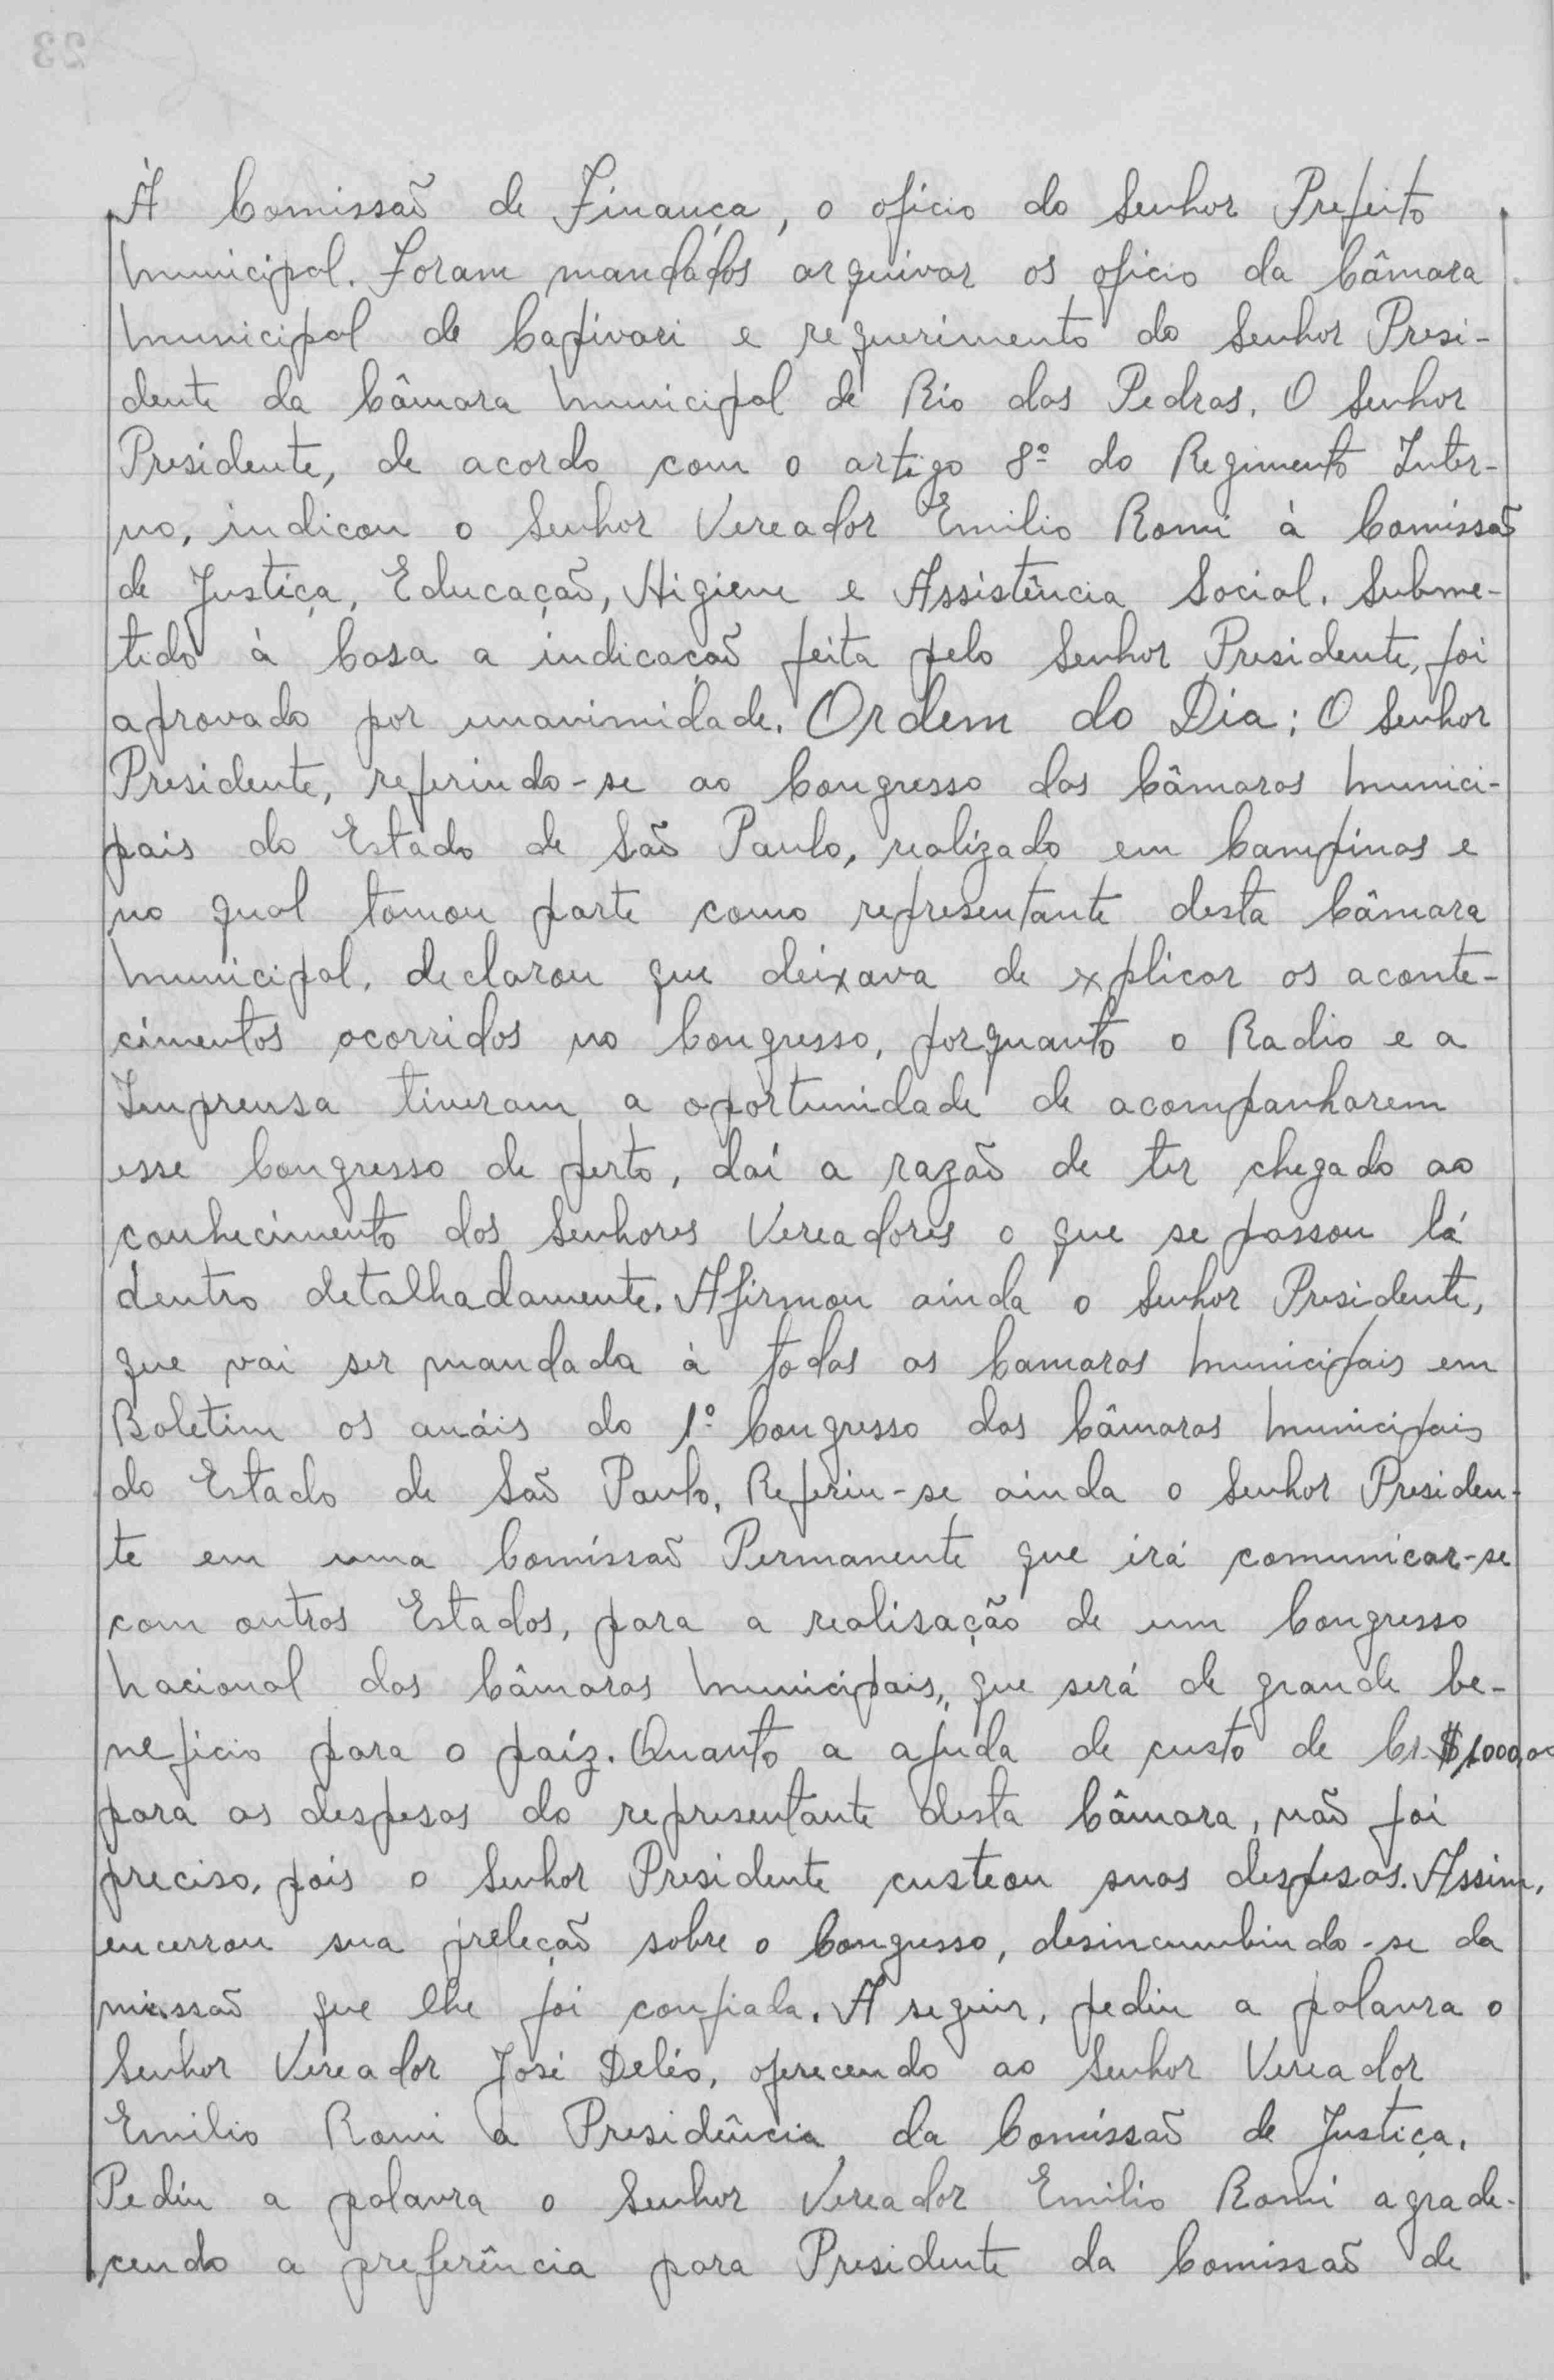 À Comissão de Finança, o oficio do Senhor Prefeito
Municipal. Foram mandados arquivar os oficio da Câmara
Municipal de Capivari e requerimento do Senhor Presi-
dente da Câmara Municipal de Rio das Pedras. O Senhor
Presidente, de acordo com o artigo 8º do Regimento Inter-
no, indicou o Senhor Vereador Emilio Romi à Comissão
de Justiça, Educação, Higiene e Assistência Social. Subme-
tido à Casa a indicação feita pelo Senhor Presidente, foi
aprovado por unanimidade. Ordem do Dia: O Senhor
Presidente, referindo-se ao Congresso das Câmaras Munici-
pais do Estado de São Paulo, realizado em Campinas e
no qual tomou parte como representante desta Câmara
Municipal, declarou que deixava de explicar os aconte-
cimentos ocorridos no Congresso, porquanto o Radio e a
Imprensa tiveram a oportunidade de acompanharem
esse Congresso de perto, daí a razão de ter chegado ao
conhecimento dos Senhores Vereadores o que se passou lá
dentro detalhadamente. Afirmou ainda o Senhor Presidente,
que vai ser mandada à todas as Camaras Municipais em
Boletim os anáis do 1º Congresso das Câmaras Municipais
do Estado de São Paulo. Referiu-se ainda o Senhor Presiden-
te em uma Comissão Permanente que irá comunicar-se
com outros Estados, para a realisação de um Congresso
Nacional das Câmaras Municipais, que será de grande be-
neficio para o paíz. Quanto a ajuda de custo de Cr.$1.000,00
para as despesas do representante desta Câmara, não foi
preciso, pois o Senhor Presidente custeou suas despesas. Assim,
encerrou sua preleção sobre o Congresso, desincumbindo-se da
missão que lhe foi confiada. A seguir, pediu a palavra o
Senhor Vereador José Deléo, oferecendo ao Senhor Vereador
Emilio Romi a Presidência da Comissão de Justiça.
Pediu a palavra o Senhor Vereador Emilio Romi agrade-
cendo a preferência para Presidente da Comissão de